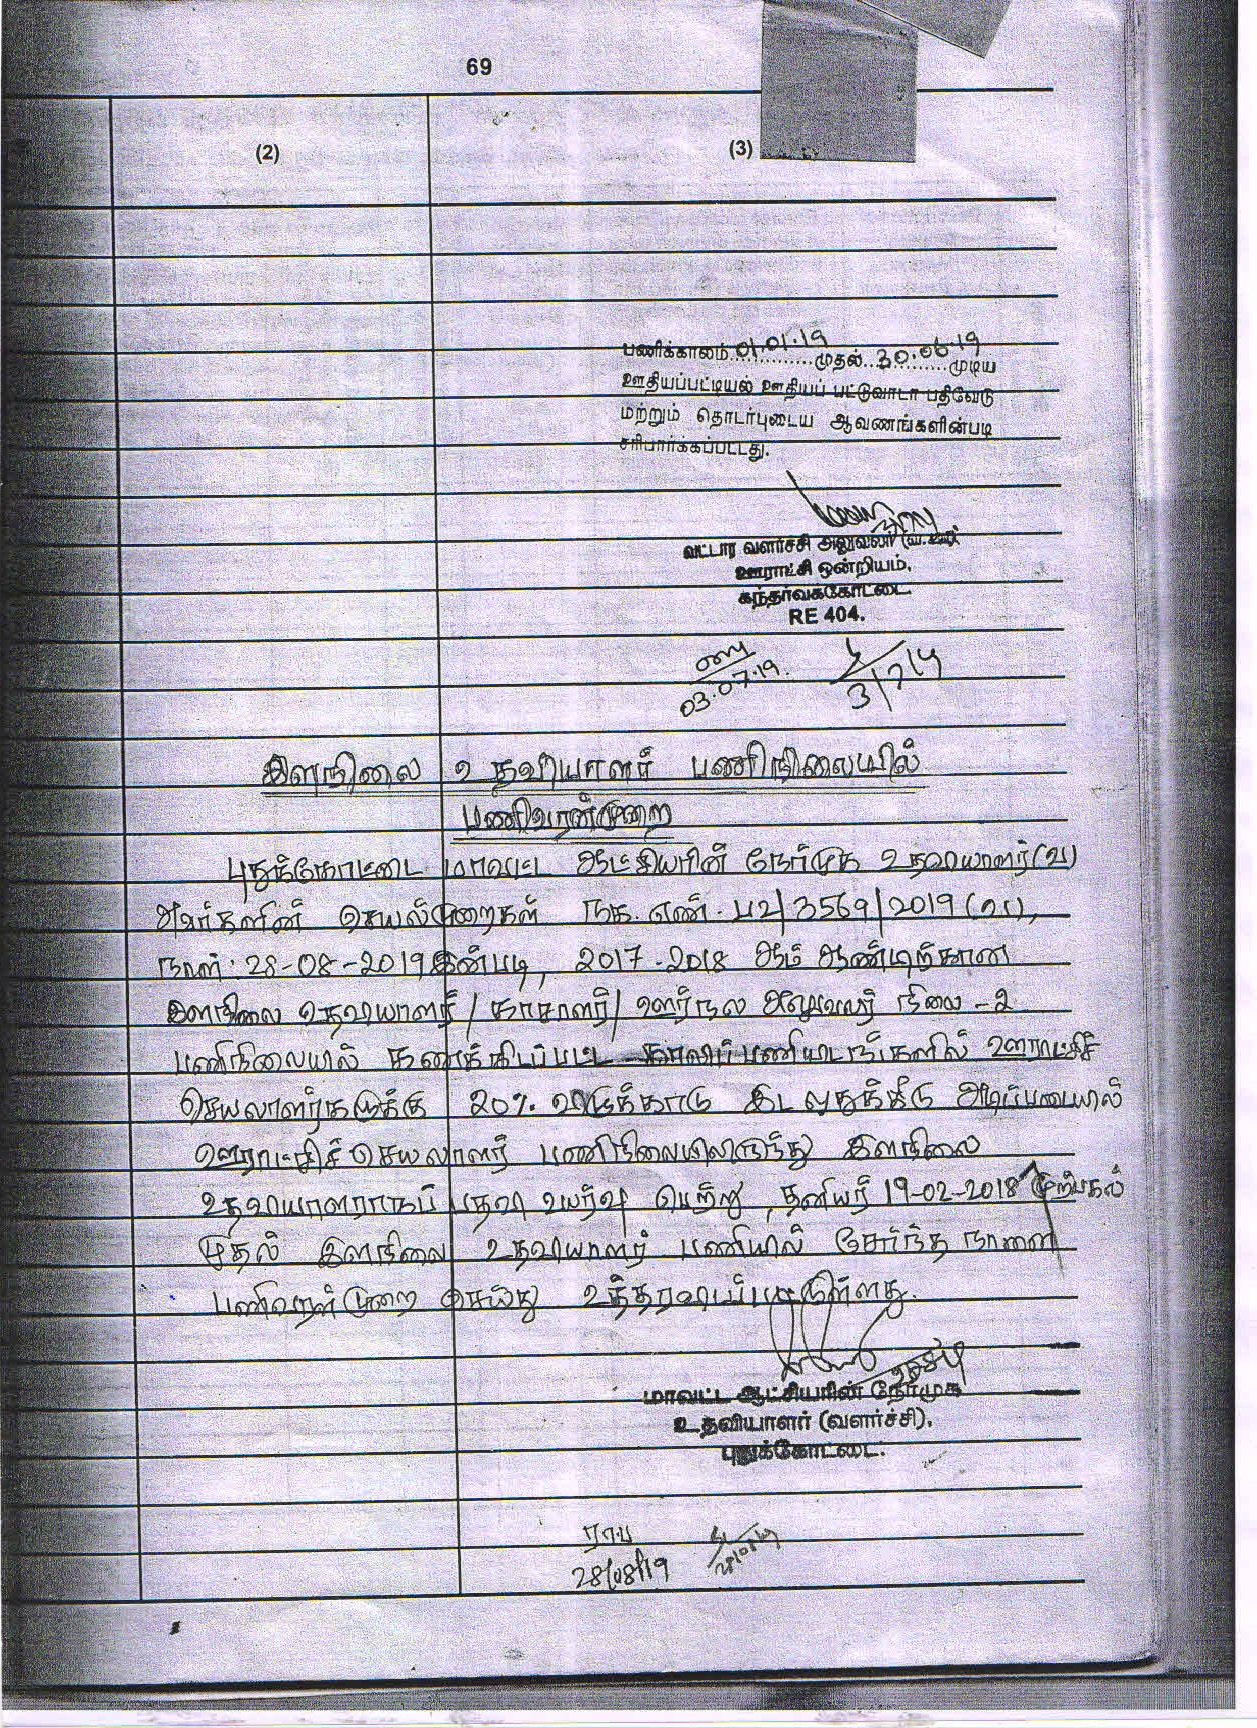 69
(2)
(3)
பணிக்காலம் 01.01.19 முதல் 30.06.19 முடிய
ஊதியப்பட்டியல் ஊதியப் பட்டுவாடா பதிவேடு
மற்றும் தொடர்புடைய ஆவணங்களின்படி
சரிபார்க்கப்பட்டது.
வட்டார வளர்ச்சி அலுவலர் (வ.ஊ)
ஊராட்சி ஒன்றியம்,
கந்தர்வகோட்டை.
RE 404.
03.07.19. 3/7/19
இளநிலை உதவியாளர் பணிநிலையில்
பணிவரன்முறை
புதுக்கோட்டை மாவட்ட ஆட்சியரின் நேர்முக உதவியாளர்(வ)
அவர்களின் செயல்முறைகள் நக.எண். ப2/3569/2019 (வ),
நாள்: 28-08-2019இன்படி, 2017-2018 ஆம் ஆண்டிற்கான
இளநிலை உதவியாளர் / காசாளர்/ ஊர்நல அலுவலர் நிலை -2
பணிநிலையில் கணக்கிடப்பட்ட காலிப்பணியிடங்களில் ஊராட்சிச்
செயலாளர்களுக்கு 20% விழுக்காடு இடஒதுக்கீடு அடிப்படையில்
ஊராட்சிச்செயலாளர் பணிநிலையிலிருந்து இளநிலை
உதவியாளராகப் பதவி உயர்வு பெற்று, தனியர் 19-02-2018 முற்பகல்
முதல் இளநிலை உதவியாளர் பணியில் சேர்ந்த நாளை
பணிவரன்முறை செய்து உத்தரவிடப்பட்டுள்ளது.
மாவட்ட ஆட்சியரின் நேர்முக
உதவியாளர் (வளர்ச்சி),
புதுக்கோட்டை.
28/08/19 28/08/19